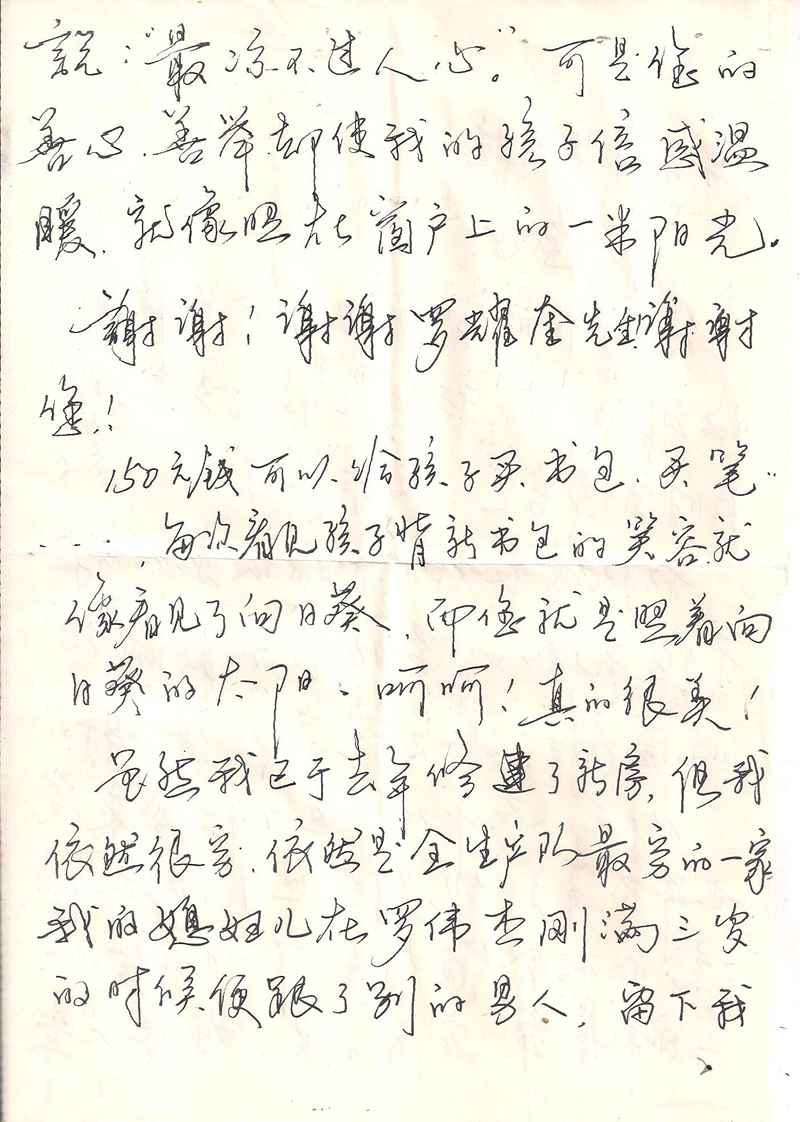 說：“最凉不过人心”。可是您的
善心、善举却使我的孩子倍感温
暖，就像照在窗户上的一米阳光。
謝谢！谢谢罗耀奎先生！谢谢
您！
150元钱可以给孩子买书包、买笔..
....，每次看见孩子背新书包的笑容就
像看见了向日葵，而您就是照着向
日葵的太阳、呵呵！真的很美！
虽然我已于去年修建了新房，但我
依然很穷，依然是全生产队最穷的一家
我的媳妇儿在罗伟杰刚满三岁
的时候便跟了别的男人，留下我